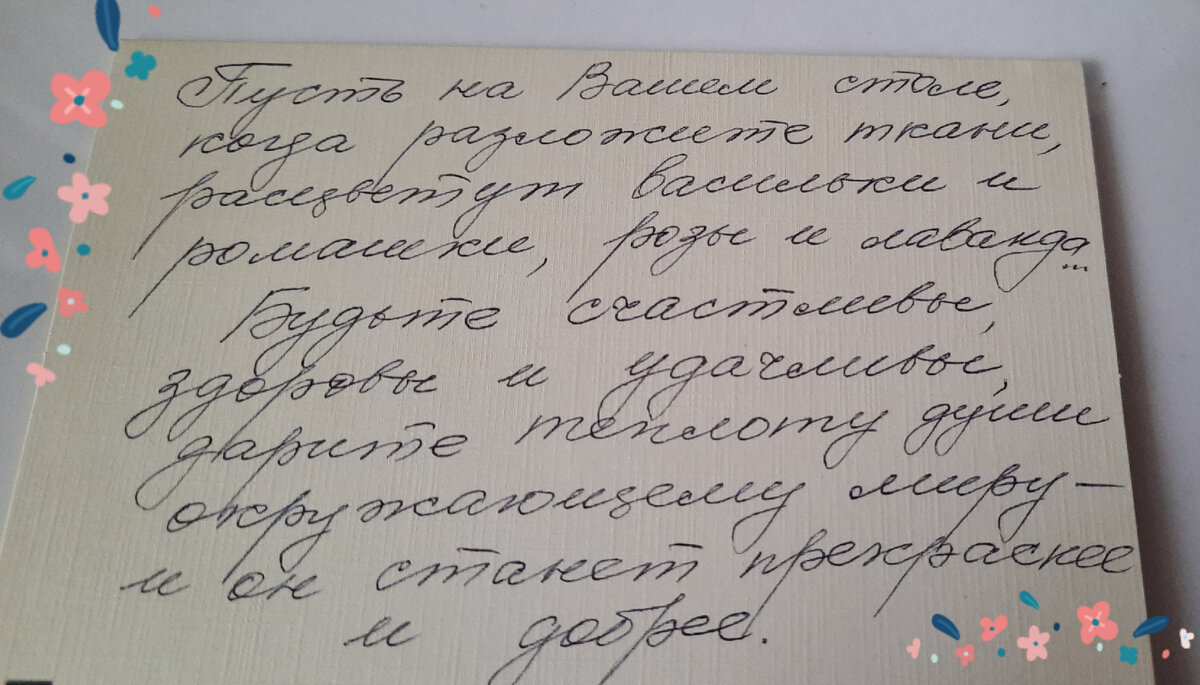 Пусть на Вашем столе,
когда разложите ткани,
расцветут васильки и
ромашки, розы и лаванда...
Будьте счастливы,
здоровы и удачливы,
дарите теплоту души
окружающему миру —
и он станет прекраснее
и добрее.